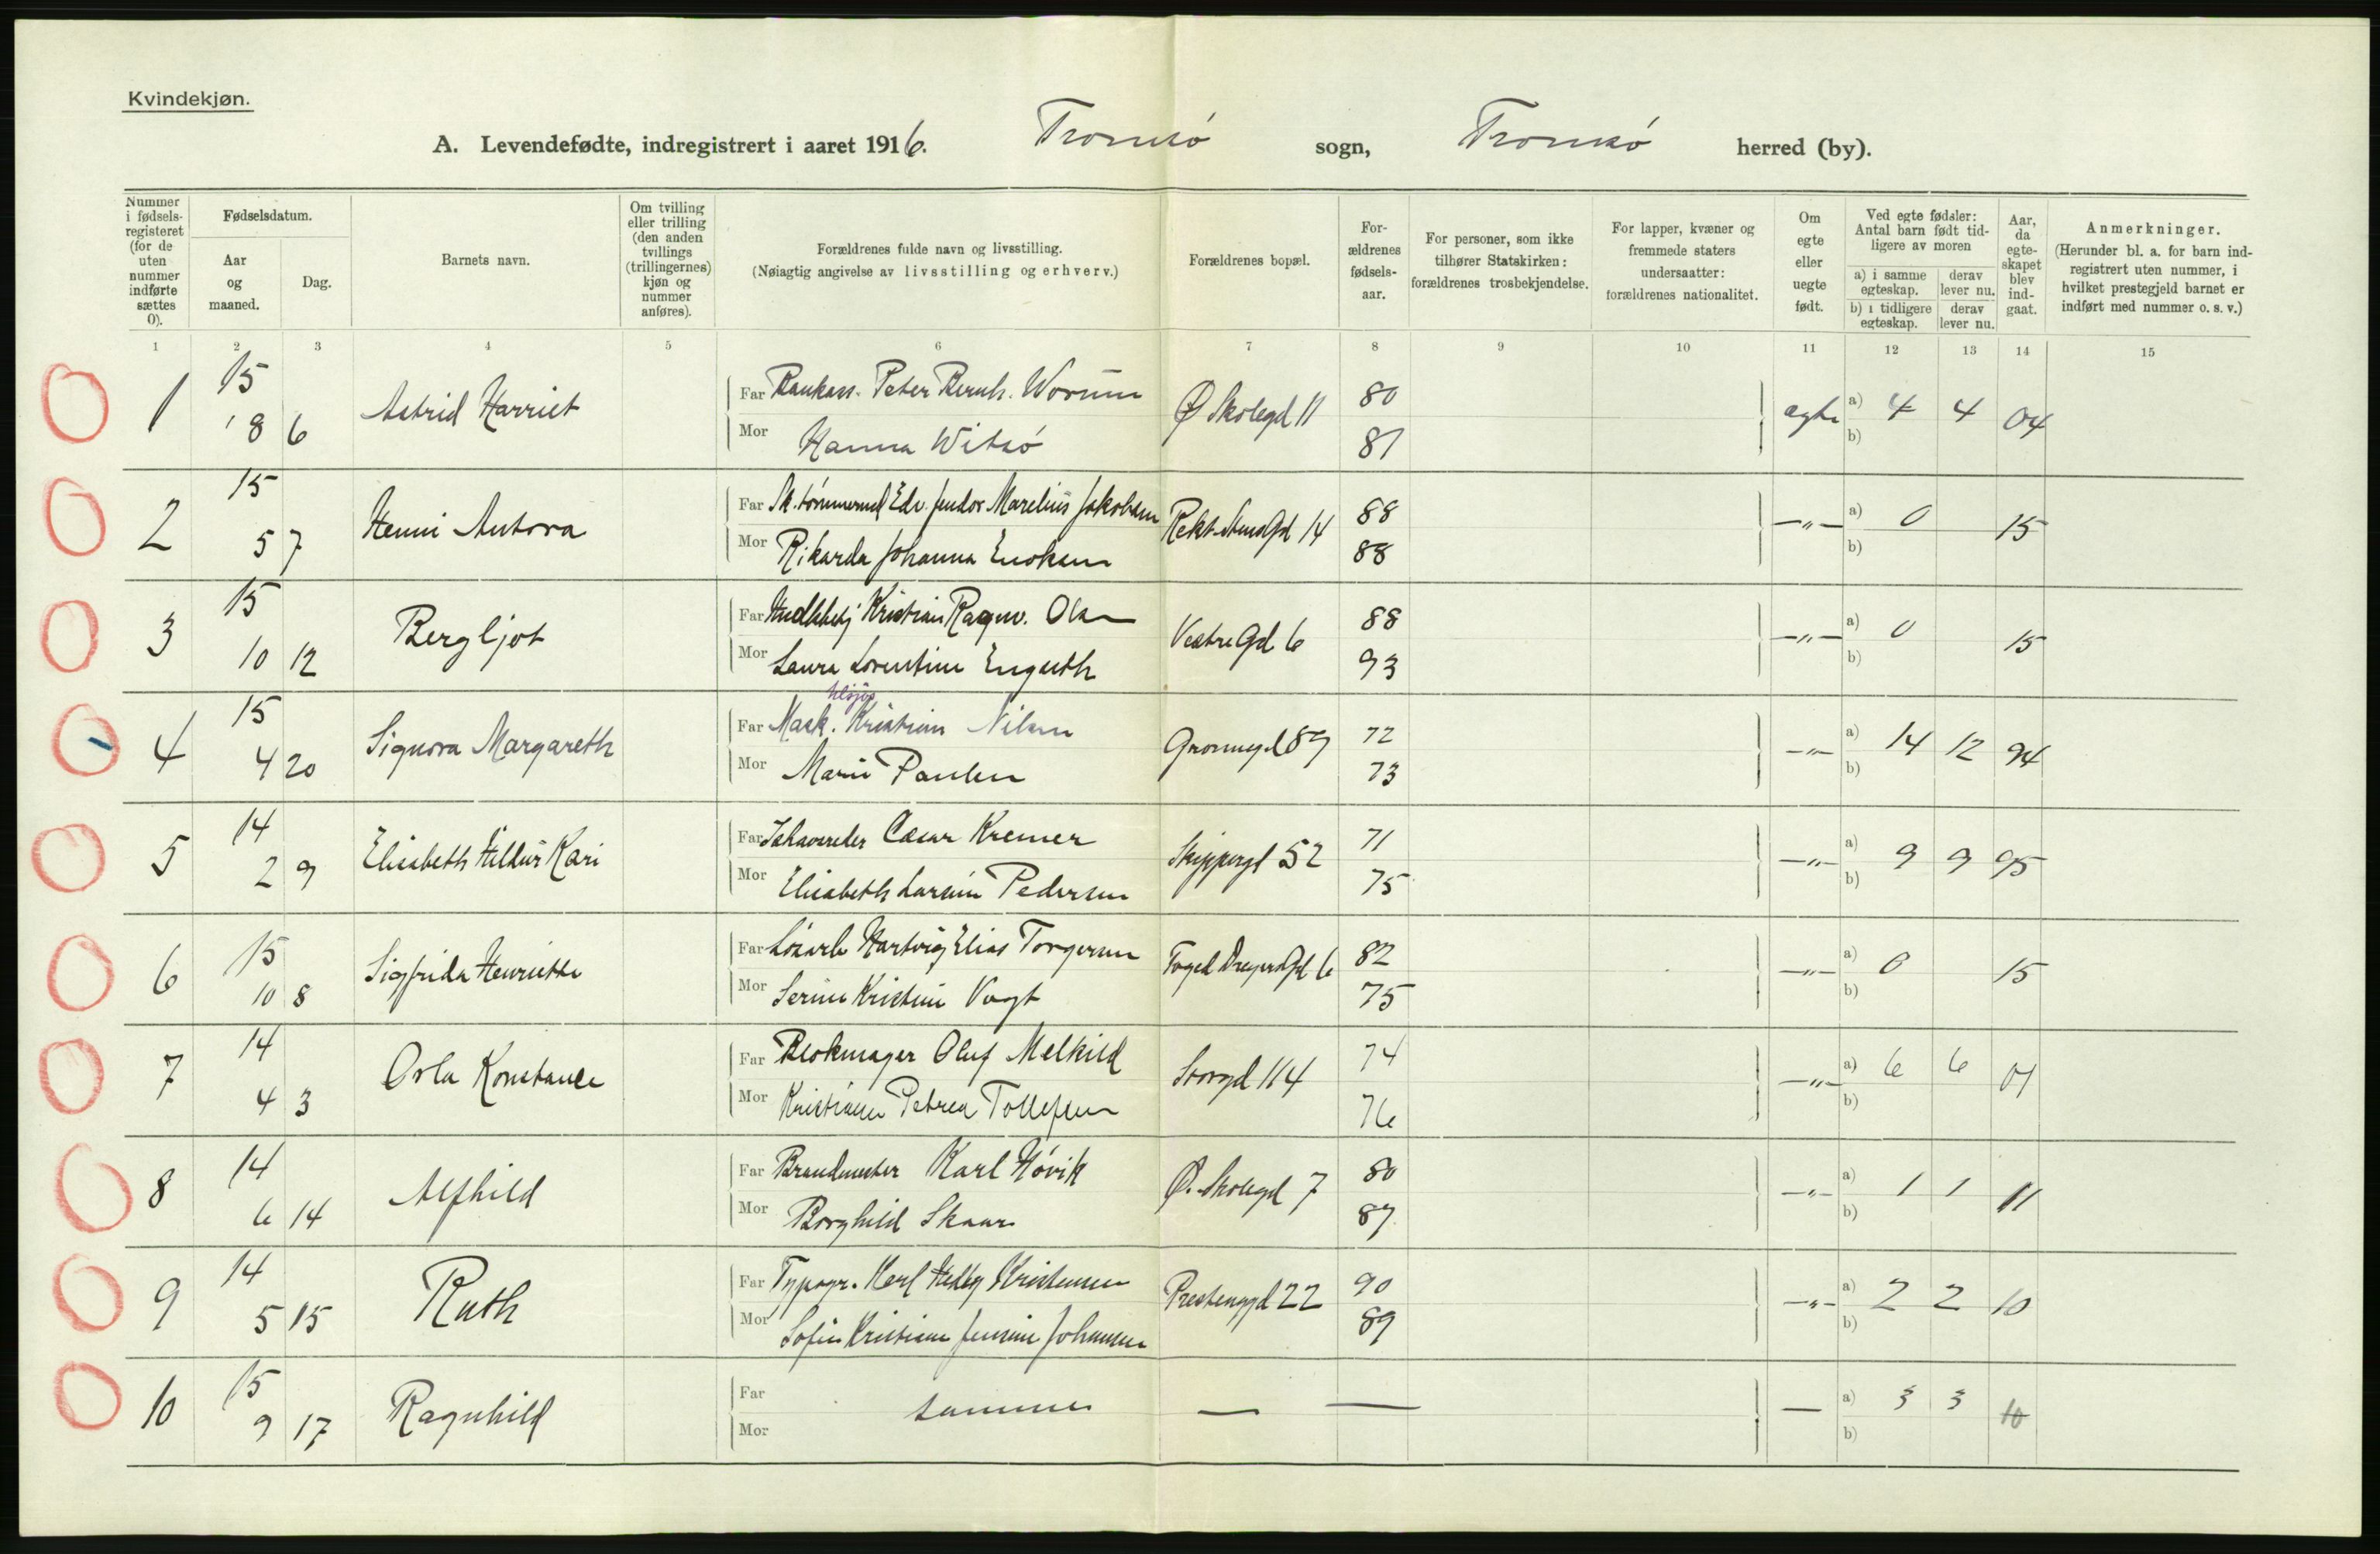 Kvindekjøn.
A. Levendefødte, indregistrert i aaret 1916. Tromsø sogn, Tromsø herred (by).
Nummer i fødselsregisteret (for de uten nummer indførte sættes 0).
Fødselsdatum.
Aar og maaned.
Dag.
Barnets navn.
Om tvilling eller trilling (den anden tvillings (trillingernes) kjøn og nummer anføres).
Forældrenes fulde navn og livsstilling.
(Nøiagtig angivelse av livsstilling og erhverv.)
Forældrenes bopæl.
For-ældrenes fødsels-aar.
For personer, som ikke tilhører Statskirken: forældrenes trosbekjendelse.
For lapper, kvæner og fremmede staters undersaatter: forældrenes nationalitet.
Om egte eller uegte født.
Ved egte fødsler: Antal barn født tid-ligere av moren
a) i samme egteskap.
derav lever nu.
b) i tidligere egteskap.
derav lever nu.
Aar, da egte-skapet blev ind-gaat.
Anmerkninger.
(Herunder bl. a. for barn ind-registrert uten nummer, i hvilket prestegjeld barnet er indført med nummer o. s. v.)
1 2 3 4 5 6 7 8 9 10 11 12 13 14 15
1 15 8 6 Astrid Harriet Far Peter Bernh. Worum Ø Skolegd 11 80 egte a) 4 4 04
Mor Hanna Witsø 81 b)
2 15 5 7 Henni Antora Far Edv. Marelius Jakobsen 14 88 —"— a) 0 15
Mor Rikarda Johanna Enoksen 88 b)
3 15 10 12 Bergljot Far Kristian Ragnv. Olsen Vestre Gd 6 88 —"— a) 0 15
Mor Laura Lorentine Engseth 93 b)
4 15 4 20 Signora Margareth Far Mask. Kristian Nilsen Grønnegd 89 72 —"— a) 14 12 94
Mor Marie Paulsen 73 b)
5 14 2 9 Elisabeth Hildur Kari Far Ishavsreder Cæsar Kremer Skippergd 52 71 —"— a) 9 9 95
Mor Elisabeth Larsine Pedersen 75 b)
6 15 10 8 Sigfrida Henriette Far Løsarb Hartvig Elias Torgersen Foged Dreyers Gd 6 82 —"— a) 0 15
Mor Serine Kristine Vogt 75 b)
7 14 4 3 Orla Konstance Far Blokmager Oluf Melkild Storgd 114 74 —"— a) 6 6 01
Mor Kristiane Petrea Tollefsen 76 b)
8 14 6 14 Alfhild Far Brandmester Karl Høvik Ø. Skolegd 7 80 —"— a) 1 1 11
Mor Borghild Skaar 87 b)
9 14 5 15 Ruth Far Typogr. Karl Kristensen Prestenggd 22 90 —"— a) 2 2 10
Mor Sofie Kristiane Jensine Johansen 89 b)
10 15 9 17 Ragnhild Far samme — — — a) 3 3 10
Mor b)